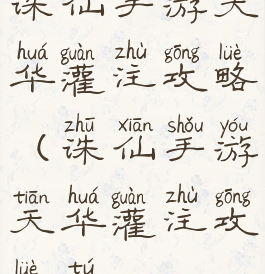 诛仙手游天
huá guàn zhù gōng lüè
华灌注攻略
zhū xiān shǒu yóu
(诛仙手游
tiān huá guàn zhù gōng
天华灌注攻
lüè tú